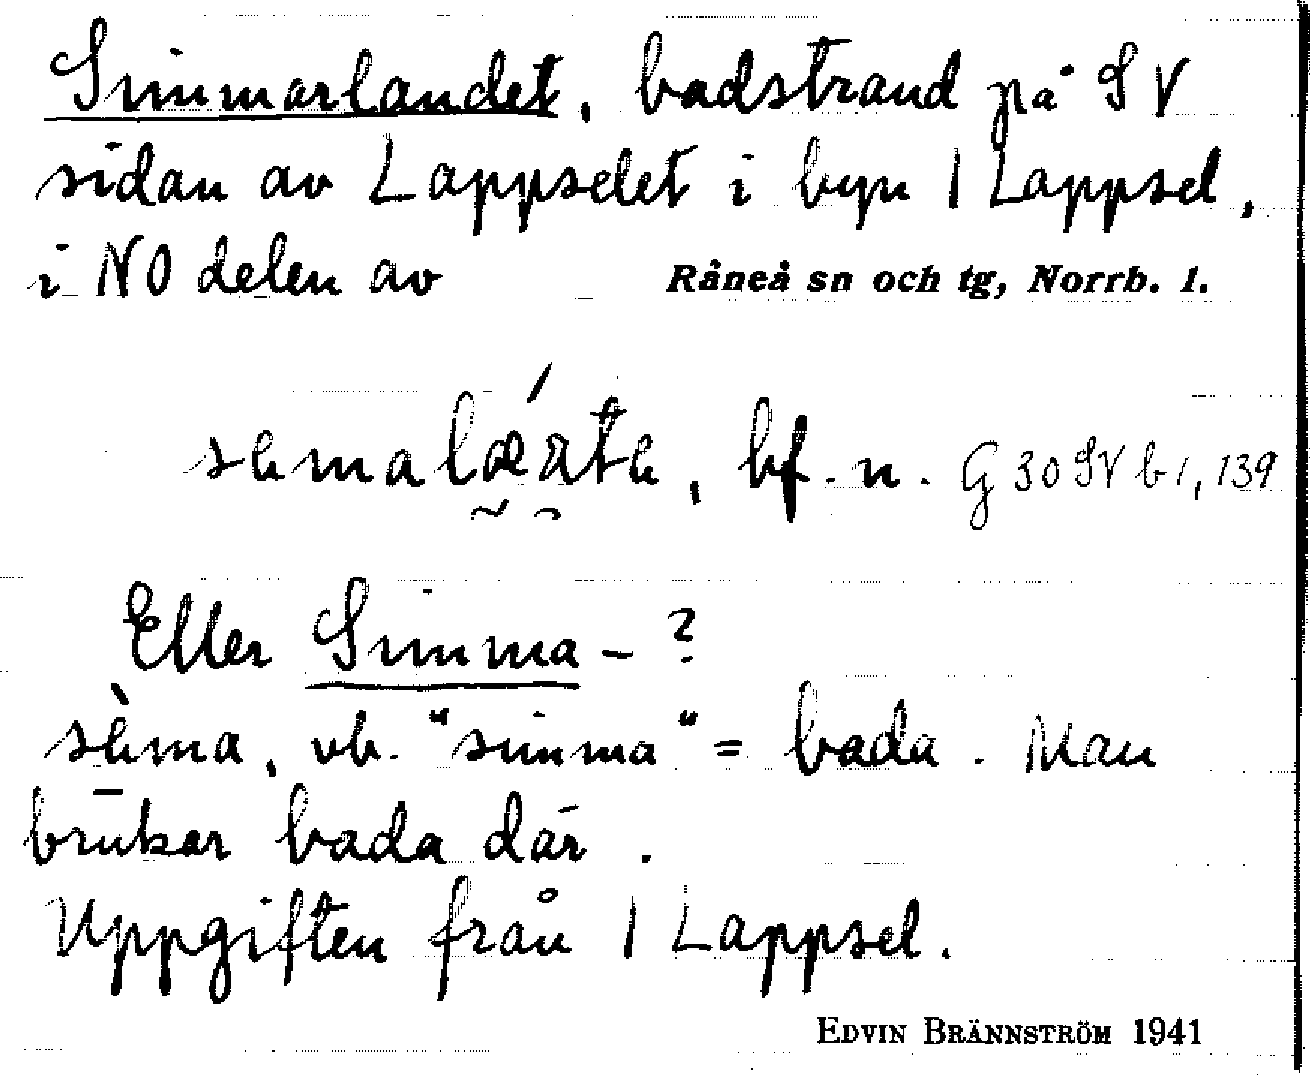 Simmarlandet, badstrand på SV
sidan av Lappselet i byn 1 Lappsel,
i NO delen av Råneå sn och tg, Norrb. l.
bf. n. G 30 SV b 1, 139
Eller Simma- ?
vb. "simma" = bada. Man
brukar bada där.
Uppgiften från 1 Lappsel.
EDVIN BRÄNNSTRÖM 1941